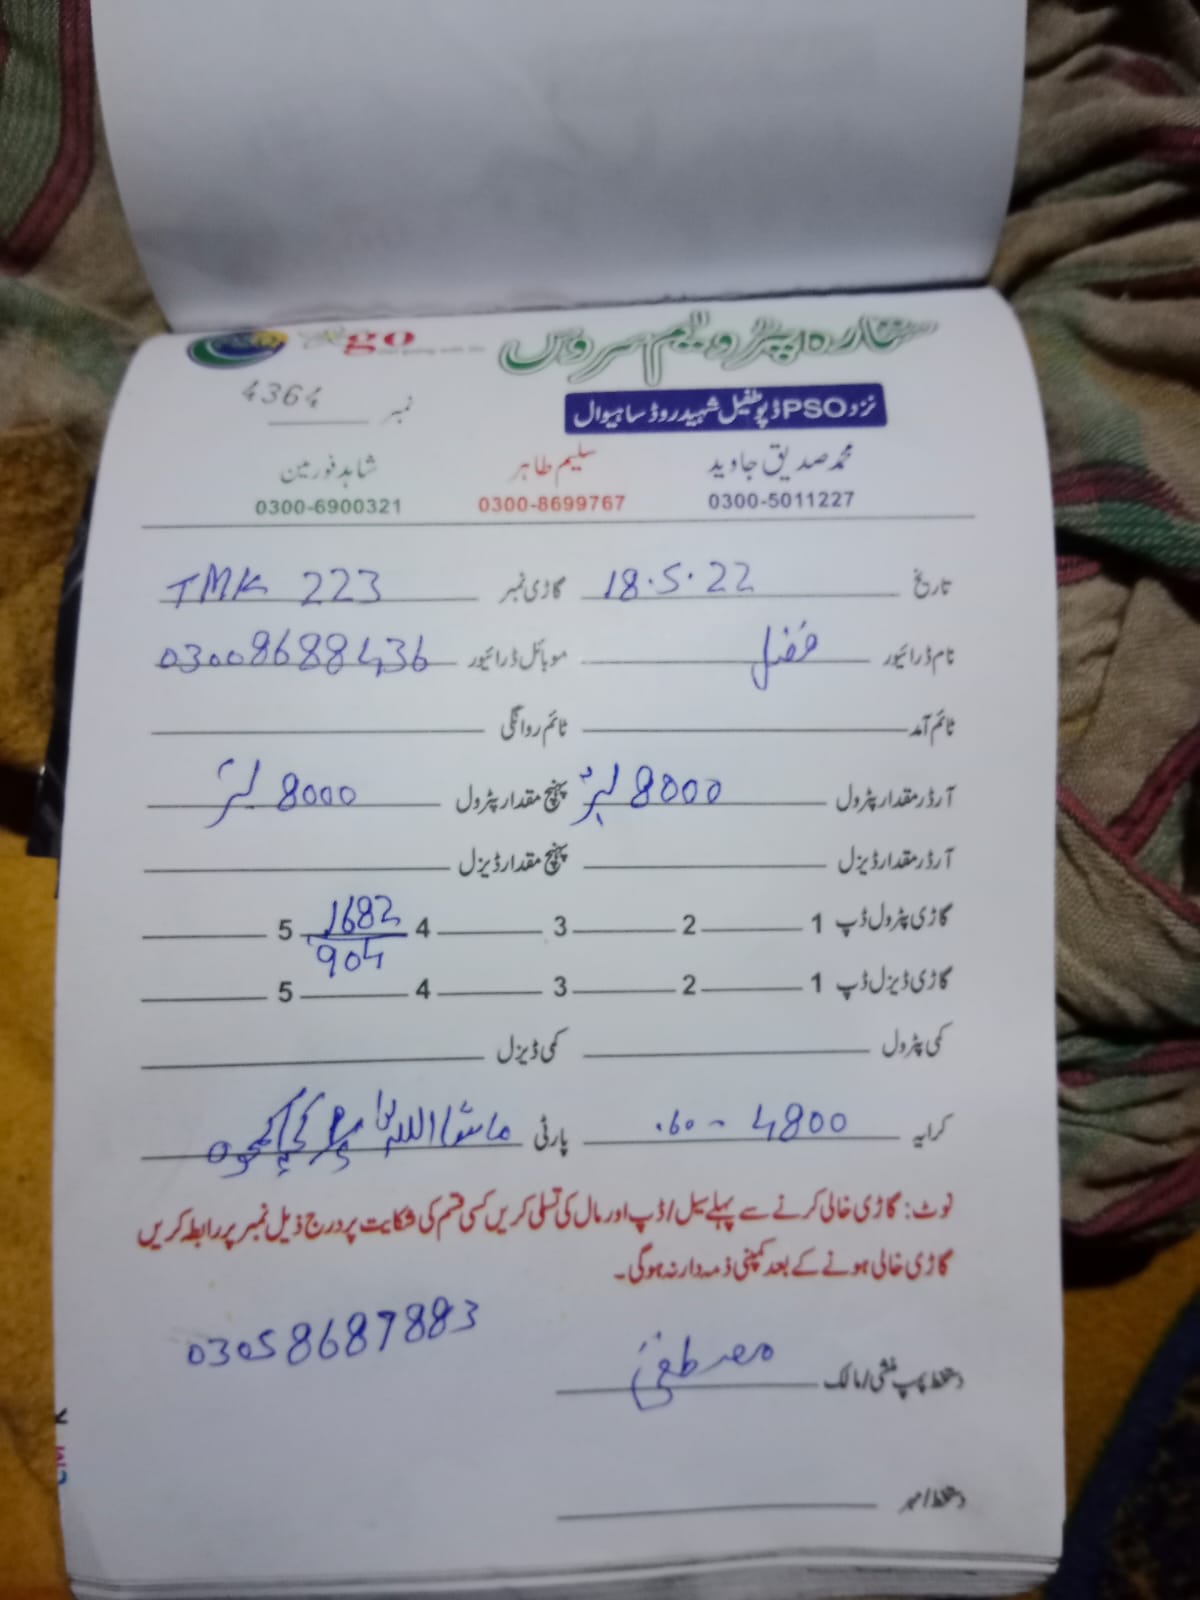 ستارہ پٹرولیم سروس
go
نزد PSO ڈپو طفیل شہید روڈ ساہیوال
نمبر 4364
محمد صدیق جاوید سلیم طاہر شاہد فورمین
0300-5011227 0300-8699767 0300-6900321
تاریخ 18.5.22 گاڑی نمبر TMK 223
نام ڈرائیور فضل موبائل ڈرائیور 03008688436
ٹائم آمد ٹائم روانگی
آرڈر مقدار پٹرول 8000 لیٹر پہنچ مقدار پٹرول 8000 لیٹر
آرڈر مقدار ڈیزل پہنچ مقدار ڈیزل
گاڑی پٹرول ڈپ 1 2 3 4 1682 5
904
گاڑی ڈیزل ڈپ 1 2 3 4 5
کمی پٹرول کمی ڈیزل
کرایہ 4800 - .60 پارٹی ماشااللہ
نوٹ: گاڑی خالی کرنے سے پہلے سیل/ڈپ اور مال کی تسلی کریں کسی قسم کی شکایت پر درج ذیل نمبر پر رابطہ کریں
گاڑی خالی ہونے کے بعد کمپنی ذمہ دار نہ ہوگی۔
03058687883
دستخط پمپ منشی/مالک مصطفیٰ
دستخط/مہر